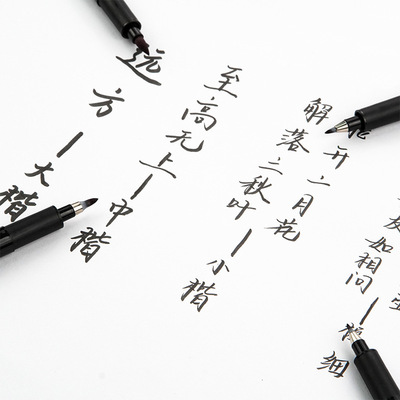 远方—大楷
至高无上—中楷
解落三秋叶—小楷
开二月花
友如相问—极细